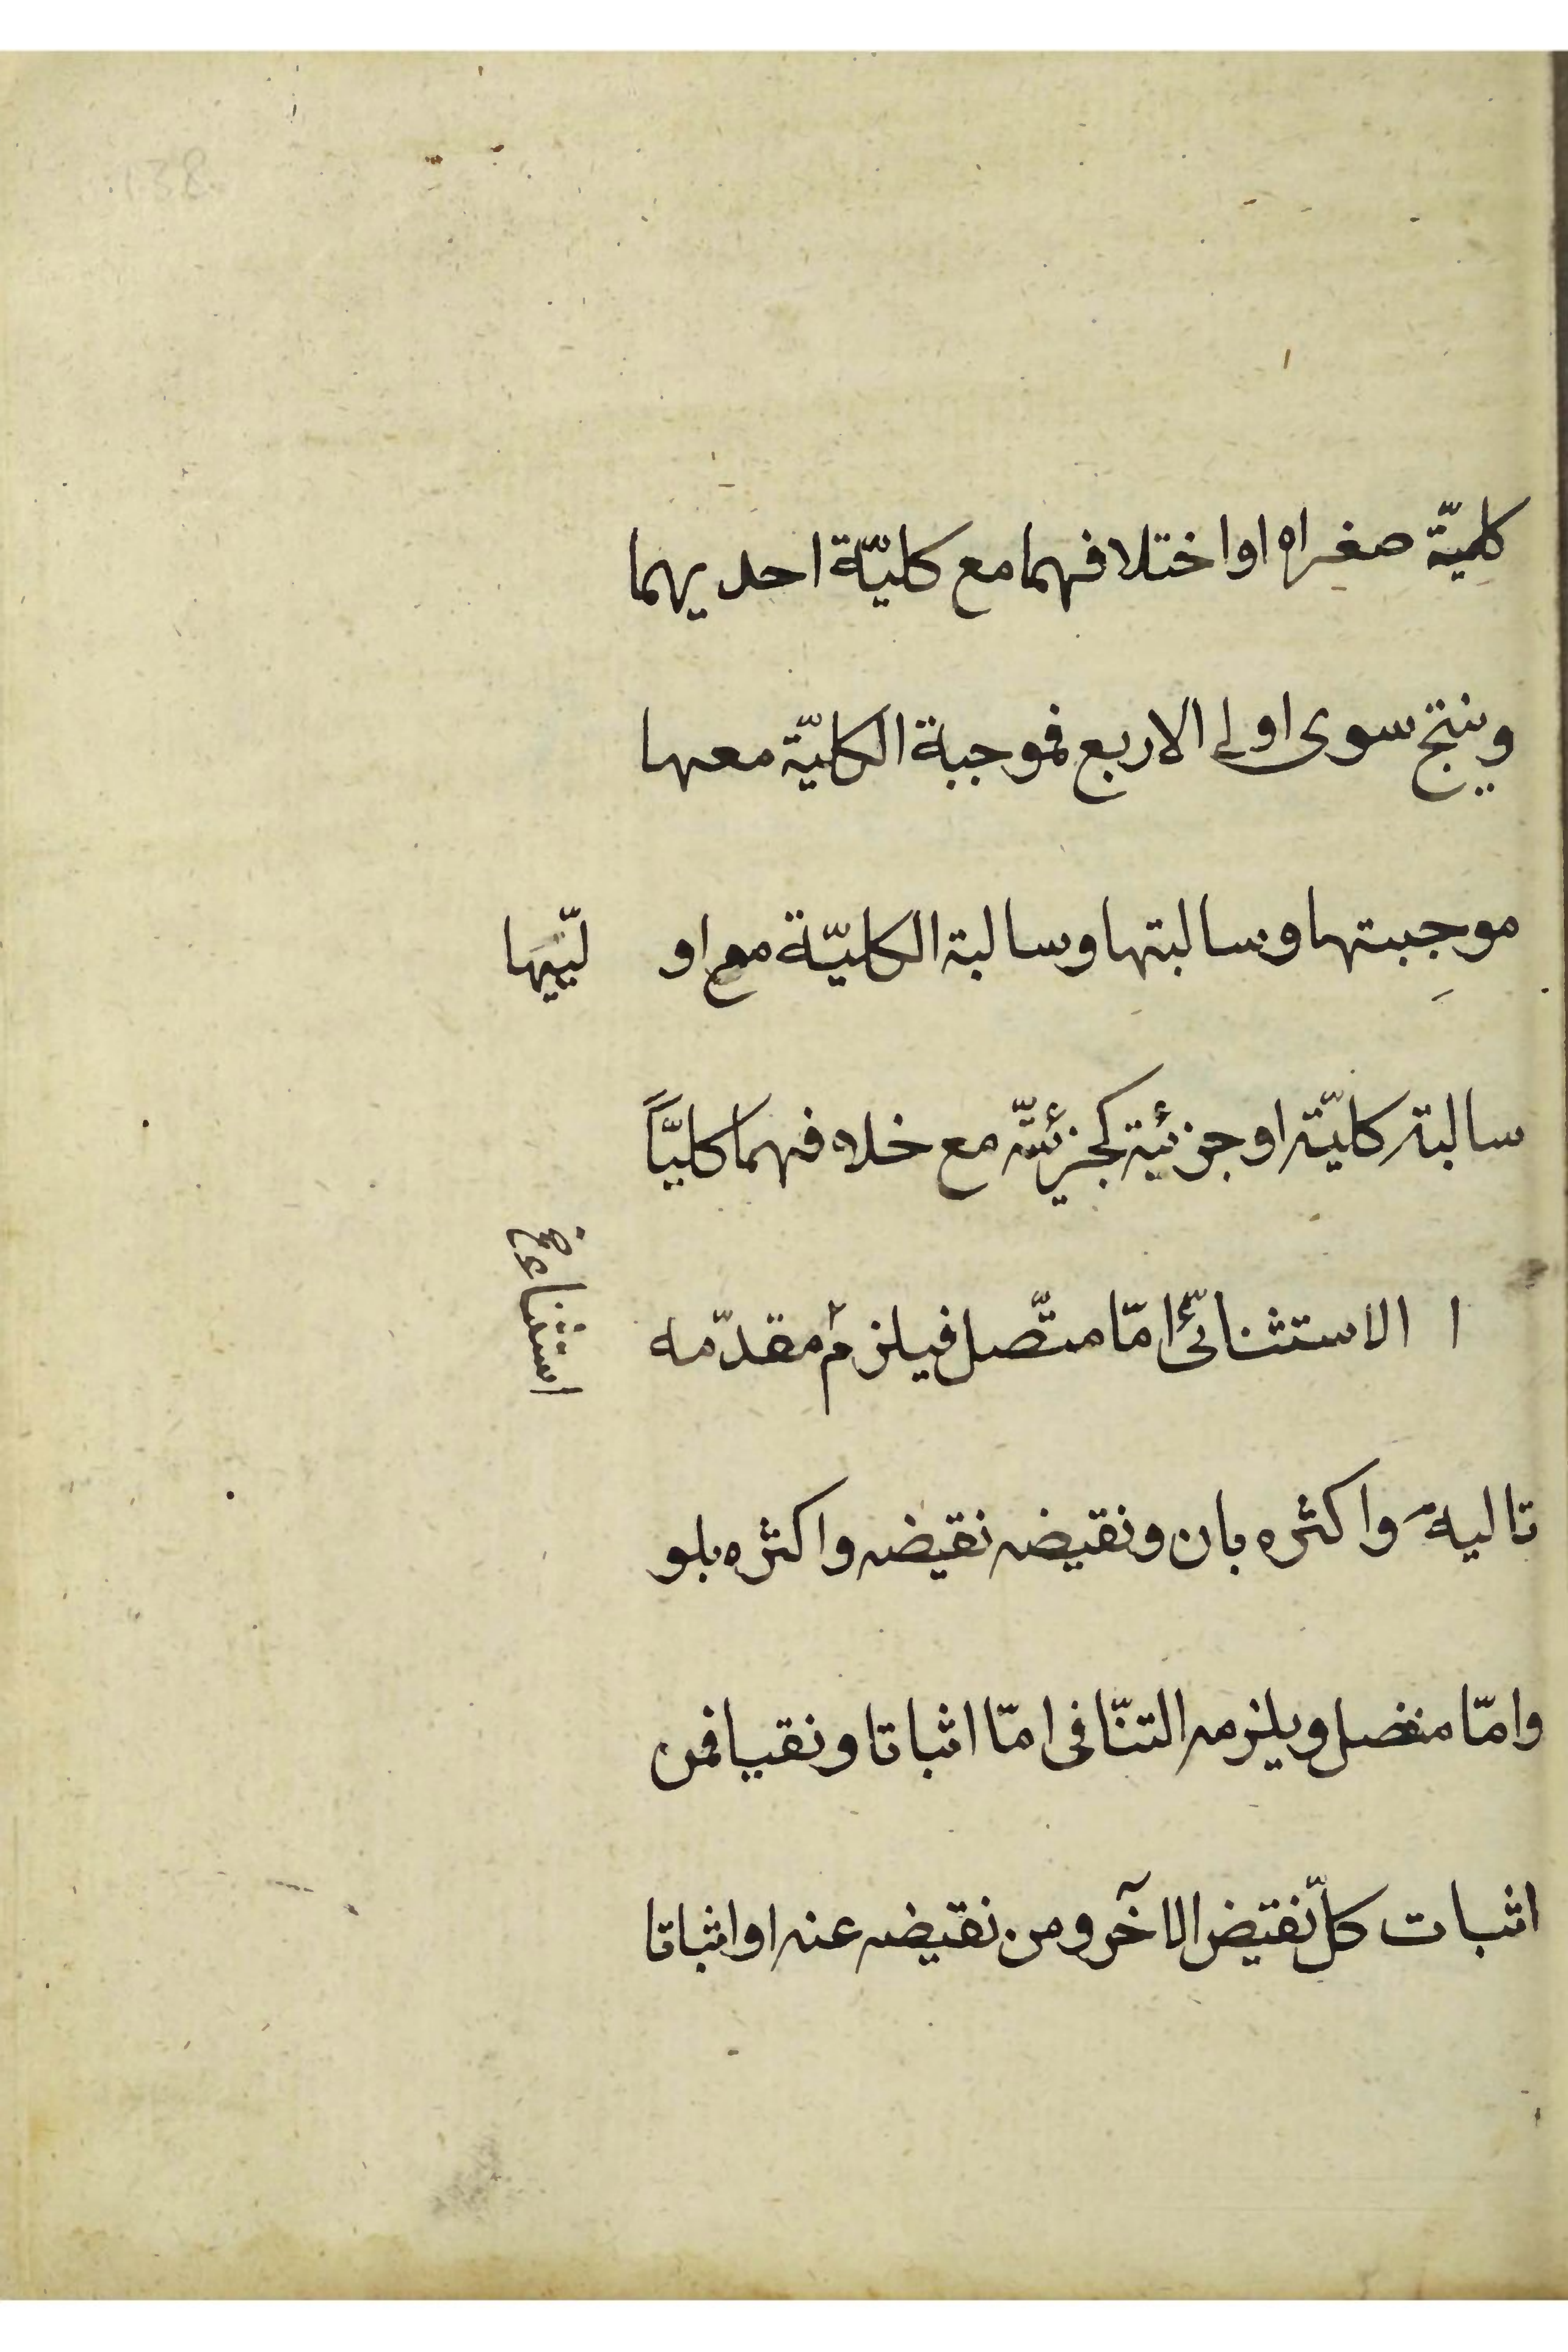 كليّة صغراه او اختلافهما مع كليّة احديهما
وينتج سوى اولى الاربع فموجبة الكليّة معها
موجبتها وسالبتها وسالبة الكليّة مع او ليّيها
سالبة كليّة او جزئية كجزئيّة مع خلافهما كليّاً
ا الاستثنائىّ امّا متّصل فيلزم مقدّمه
استثناء
تاليه واكثره بان ونقيضه نقيضه واكثره بلو
وامّا منفصل ويلزمه التنّافى امّا اثباتا ونقيا فمن
اثبات كلّ نقيض الآخر ومن نقيضه عنه او اثباتا